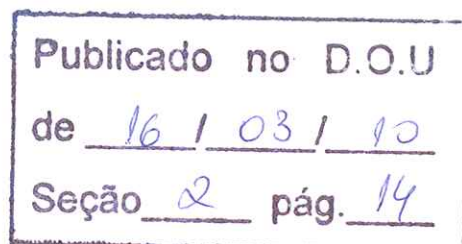 Publicado no D.O.U
de 16 / 03 / 10
Seção 2 pág. 14